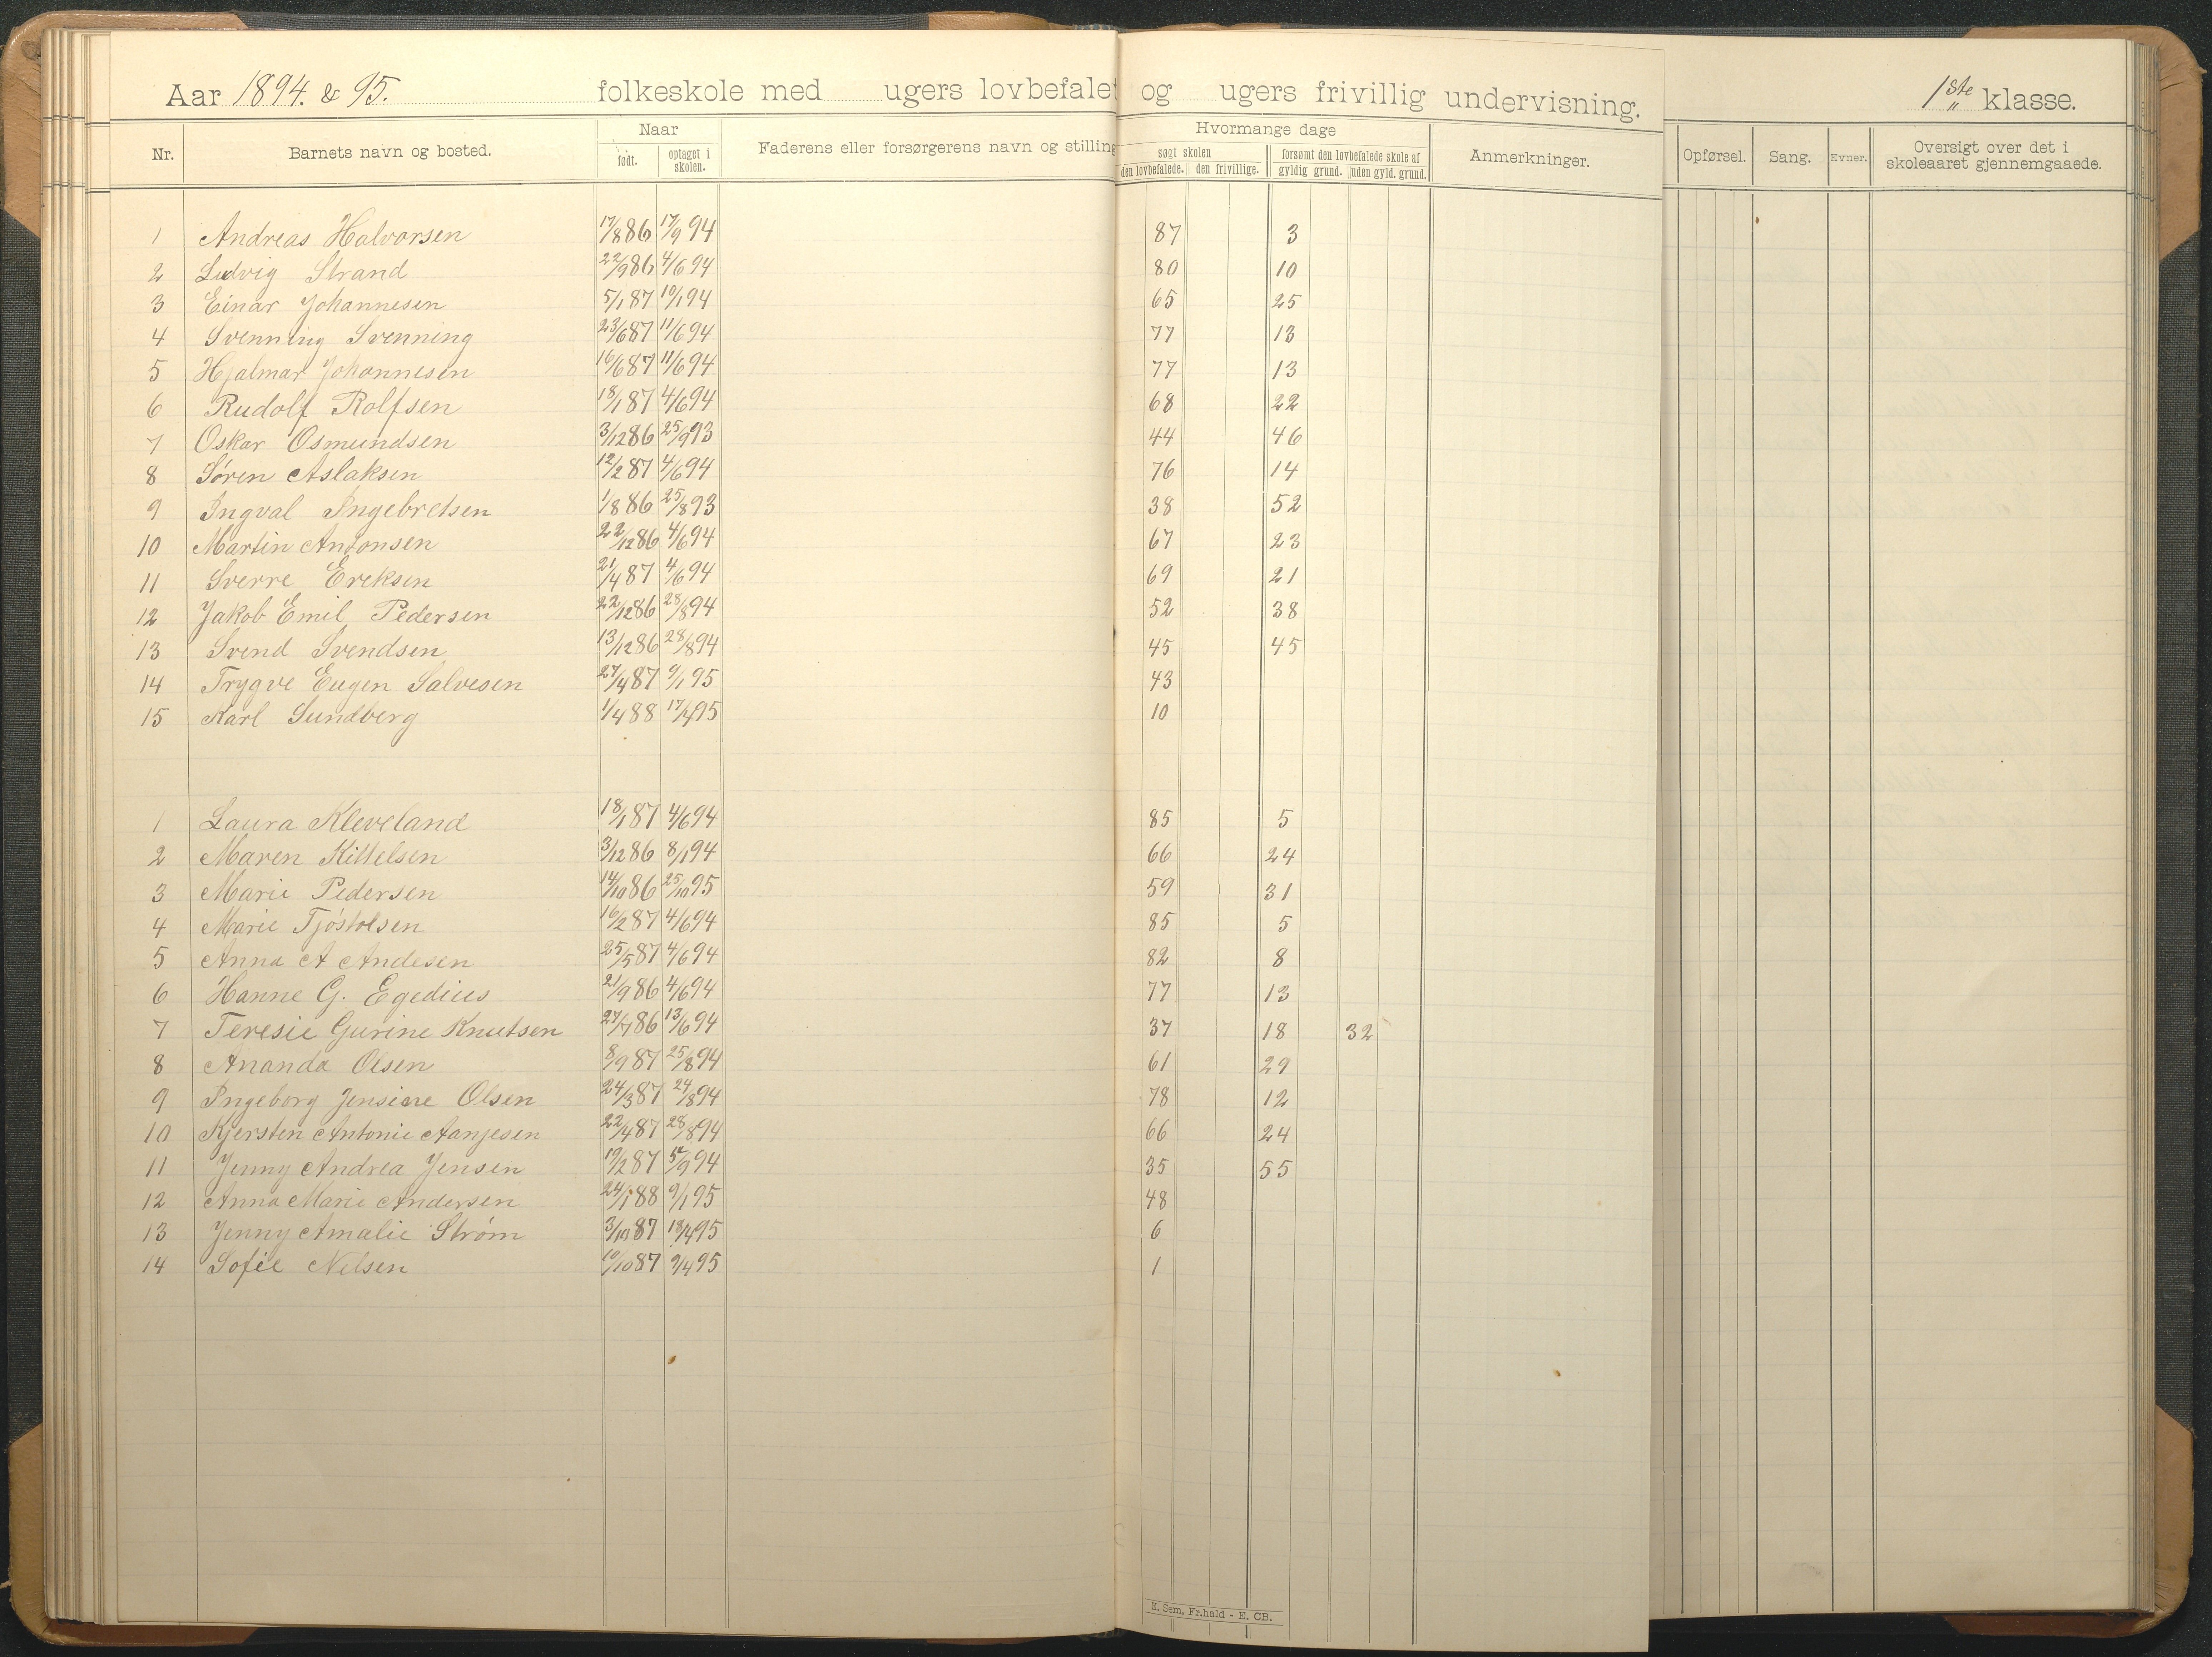 Aar 1894. & 95. folkeskole med ugers lovbefalet og ugers frivillig undervisning. 1ste klasse.
Nr. Barnets navn og bosted. Naar født. optaget i skolen. Faderens eller forsørgerens navn og stilling Hvormange dage søgt skolen den lovbefalede. den frivillige. forsømt den lovbefalede skole af gyldig grund. uden gyld. grund. Anmerkninger. Opførsel. Sang. Evner. Oversigt over det i skoleaaret gjennemgaaede.
1 Andreas Halvorsen 17/8 86 17/9 94 87 3
2 Ludvig Strand 22/9 86 4/6 94 80 10
3 Einar Johannesen 5/1 87 10/1 94 65 25
4 Svenning Svenning 23/6 87 11/6 94 77 13
5 Hjalmar Johannesen 16/6 87 11/6 94 77 13
6 Rudolf Rolfsen 18/1 87 4/6 94 68 22
7 Oskar Osmundsen 3/12 86 25/9 93 44 46
8 Søren Aslaksen 12/2 87 4/6 94 76 14
9 Ingval Ingebretsen 1/8 86 25/8 93 38 52
10 Martin Antonsen 22/12 86 4/6 94 67 23
11 Sverre Ereksen 21/4 87 4/6 94 69 21
12 Jakob Emil Pedersen 22/12 86 28/8 94 52 38
13 Svend Svendsen 13/12 86 28/8 94 45 45
14 Trygve Eugen Salvesen 27/4 87 9/1 95 43
15 Karl Sundberg 1/4 88 17/4 95 10
1 Laura Kleveland 18/1 87 4/6 94 85 5
2 Maren Kittelsen 3/12 86 8/1 94 66 24
3 Marie Pedersen 14/10 86 25/10 95 59 31
4 Marie Tjøstolsen 16/2 87 4/6 94 85 5
5 Anna A Andesen 25/5 87 4/6 94 82 8
6 Hanne G. Egedius 21/9 86 4/6 94 77 13
7 Teresie Gurine Knutsen 27/7 86 13/6 94 37 18 32
8 Ananda Olsen 8/9 87 25/8 94 61 29
9 Ingeborg Jensine Olsen 24/3 87 24/8 94 78 12
10 Kjersten Antonie Aanjesen 22/4 87 28/8 94 66 24
11 Jenny Andrea Jensen 19/2 87 5/9 94 35 55
12 Anna Marie Andersen 24/1 88 9/1 95 48
13 Jenny Amalie Strøm 3/10 87 18/4 95 6
14 Sofie Nilsen 10/10 87 9/4 95 1
E. Sem, Fr.hald - E. CB.